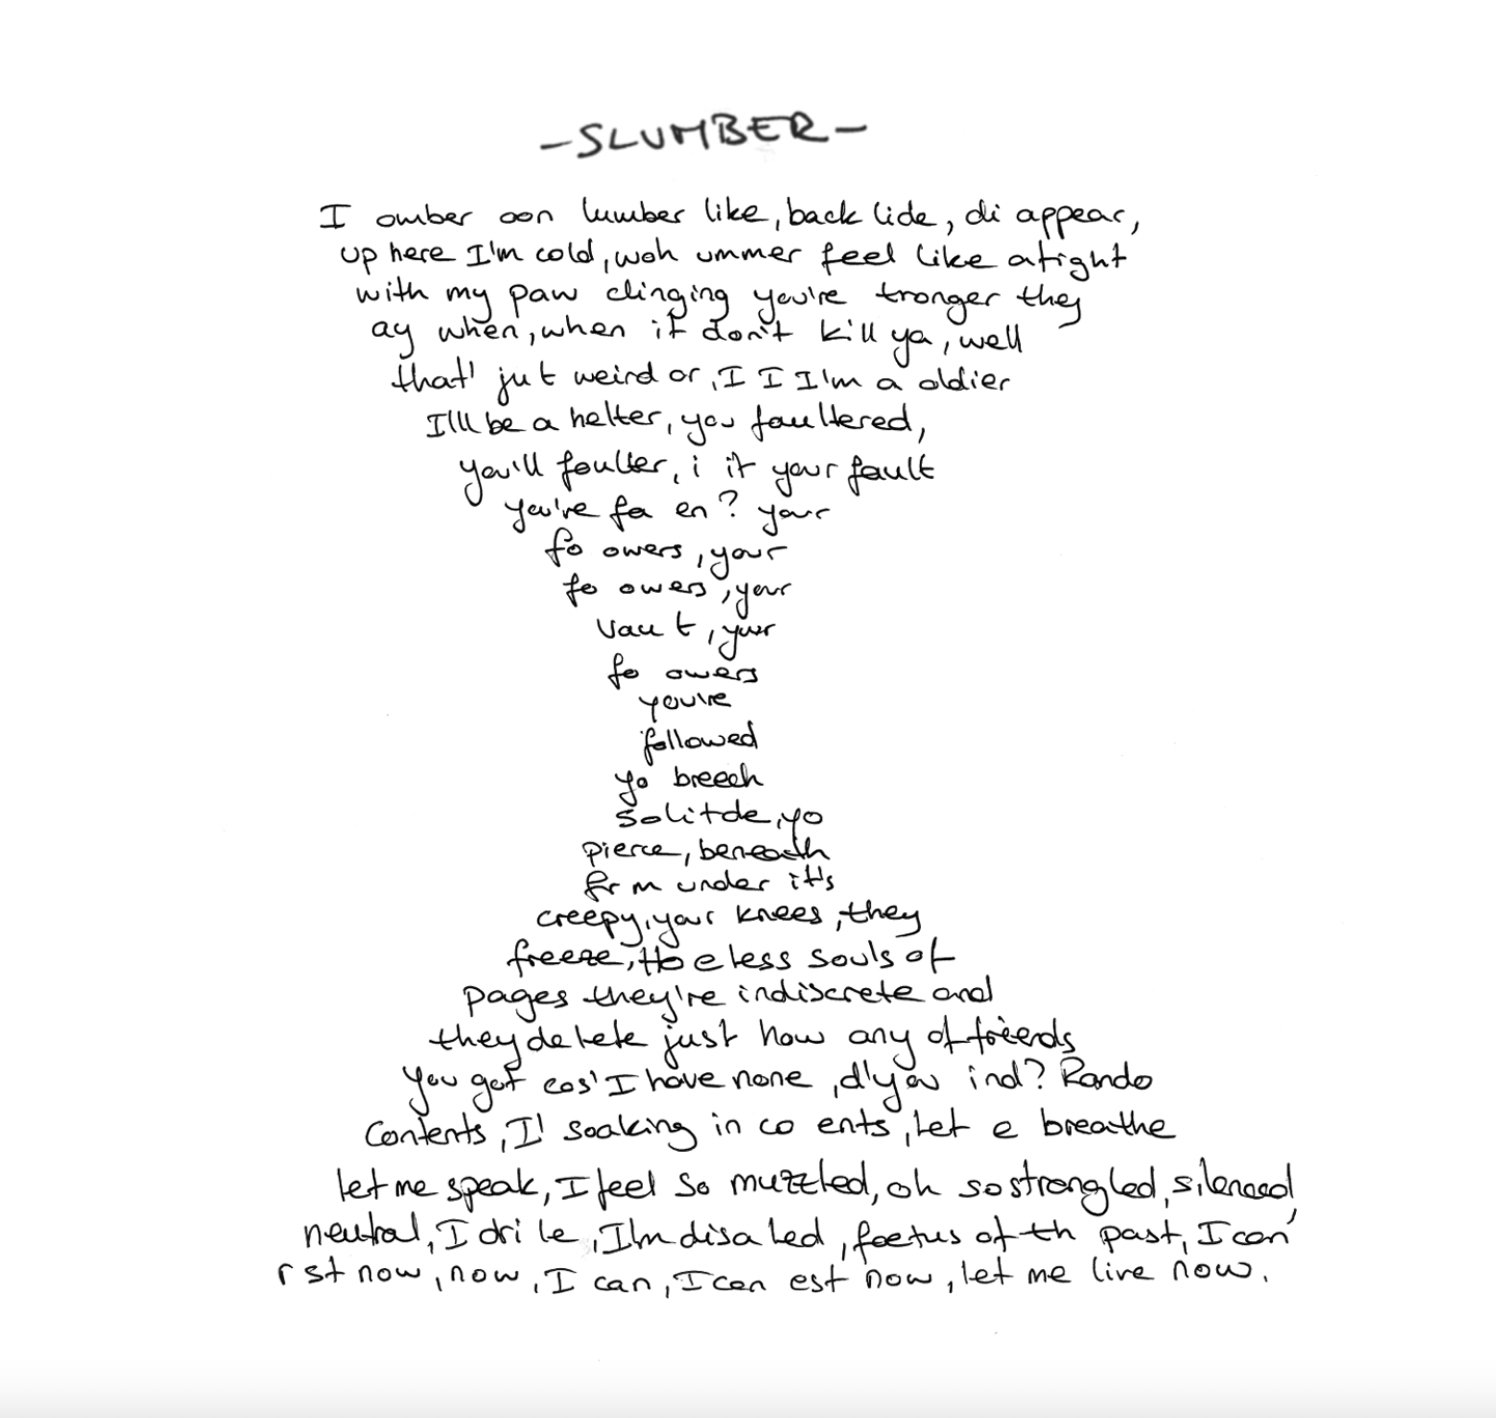 -SLUMBER-
I omber oon lumber like, back lide, di appear,
up here I'm cold, woh ummer feel like a tight
with my paw clinging you're tronger they
ay when, when it don't kill ya, well
that' ju t weird or, I I I'm a oldier
I'll be a helter, you faultered,
you'll faulter, i it your fault
you're fa en? your
fo owers, your
fo owers, your
vau t, your
fo owers
you're
followed
yo breech
solitde, yo
pierce, beneath
fr m under it's
creepy, your knees, they
freeze, Ho eless souls of
pages they're indiscrete and
they delete just how any of friends
you got cos' I have none, d'you ind? Rando
Contents, I' soaking in co ents, let e breathe
let me speak, I feel so muzzled, oh so strangled, silenced,
neutral, I dri le, I'm disa led, foetus of th past, I can'
r st now, now, I can, I can est now, let me live now.